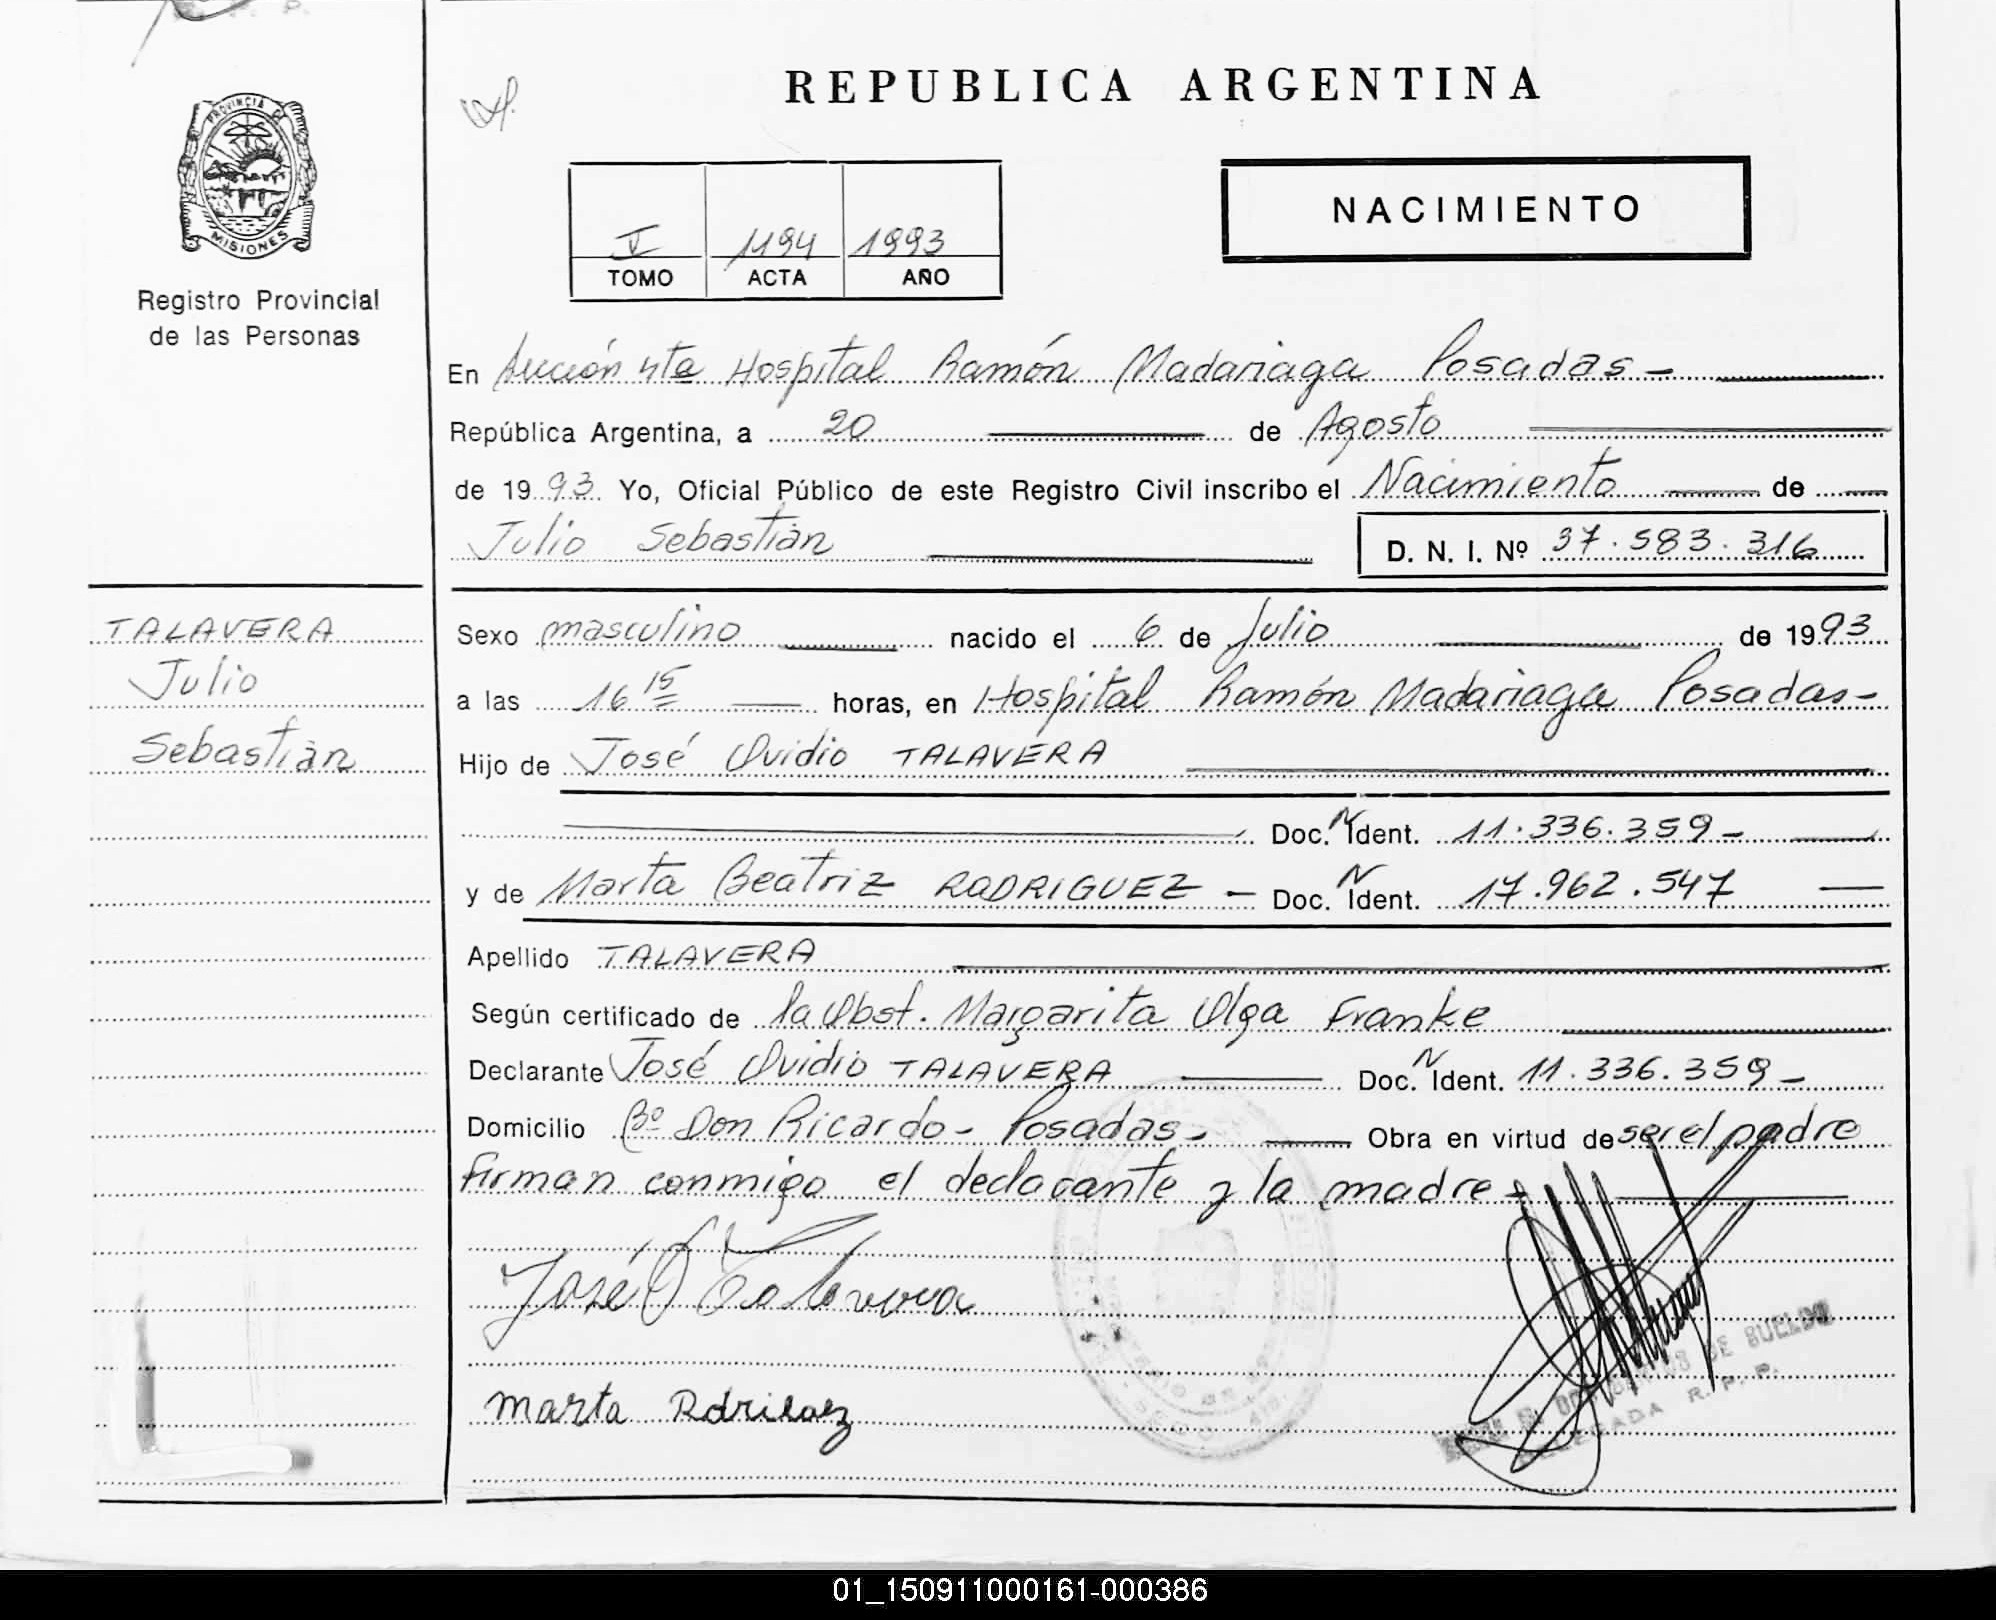 REPUBLICA ARGENTINA
PROVINCIA DE
MISIONES
Registro Provincial
de las Personas
V 1194 1993
TOMO ACTA AÑO
NACIMIENTO
En Sección 4ta Hospital Ramón Madariaga Posadas-
República Argentina, a 20 de Agosto
de 1993 Yo, Oficial Público de este Registro Civil inscribo el Nacimiento de
Julio Sebastián D. N. I. Nº 37.583.316
TALAVERA
Julio
Sebastián
Sexo masculino nacido el 6 de Julio de 1993
a las 16 15 horas, en Hospital Ramón Madariaga Posadas-
Hijo de José Ovidio TALAVERA
Doc. N Ident. 11.336.359-
y de Marta Beatriz RODRIGUEZ - Doc. N Ident. 17.962.547
Apellido TALAVERA
Según certificado de la Obst. Margarita Olga Franke
Declarante José Ovidio TALAVERA Doc. N Ident. 11.336.359-
Domicilio Bº Don Ricardo- Posadas- Obra en virtud de ser el padre
firman conmigo el declarante y la madre-
José O Talavera
DE SUELDO
R. P. P.
Marta Rdriguez
01_150911000161-000386